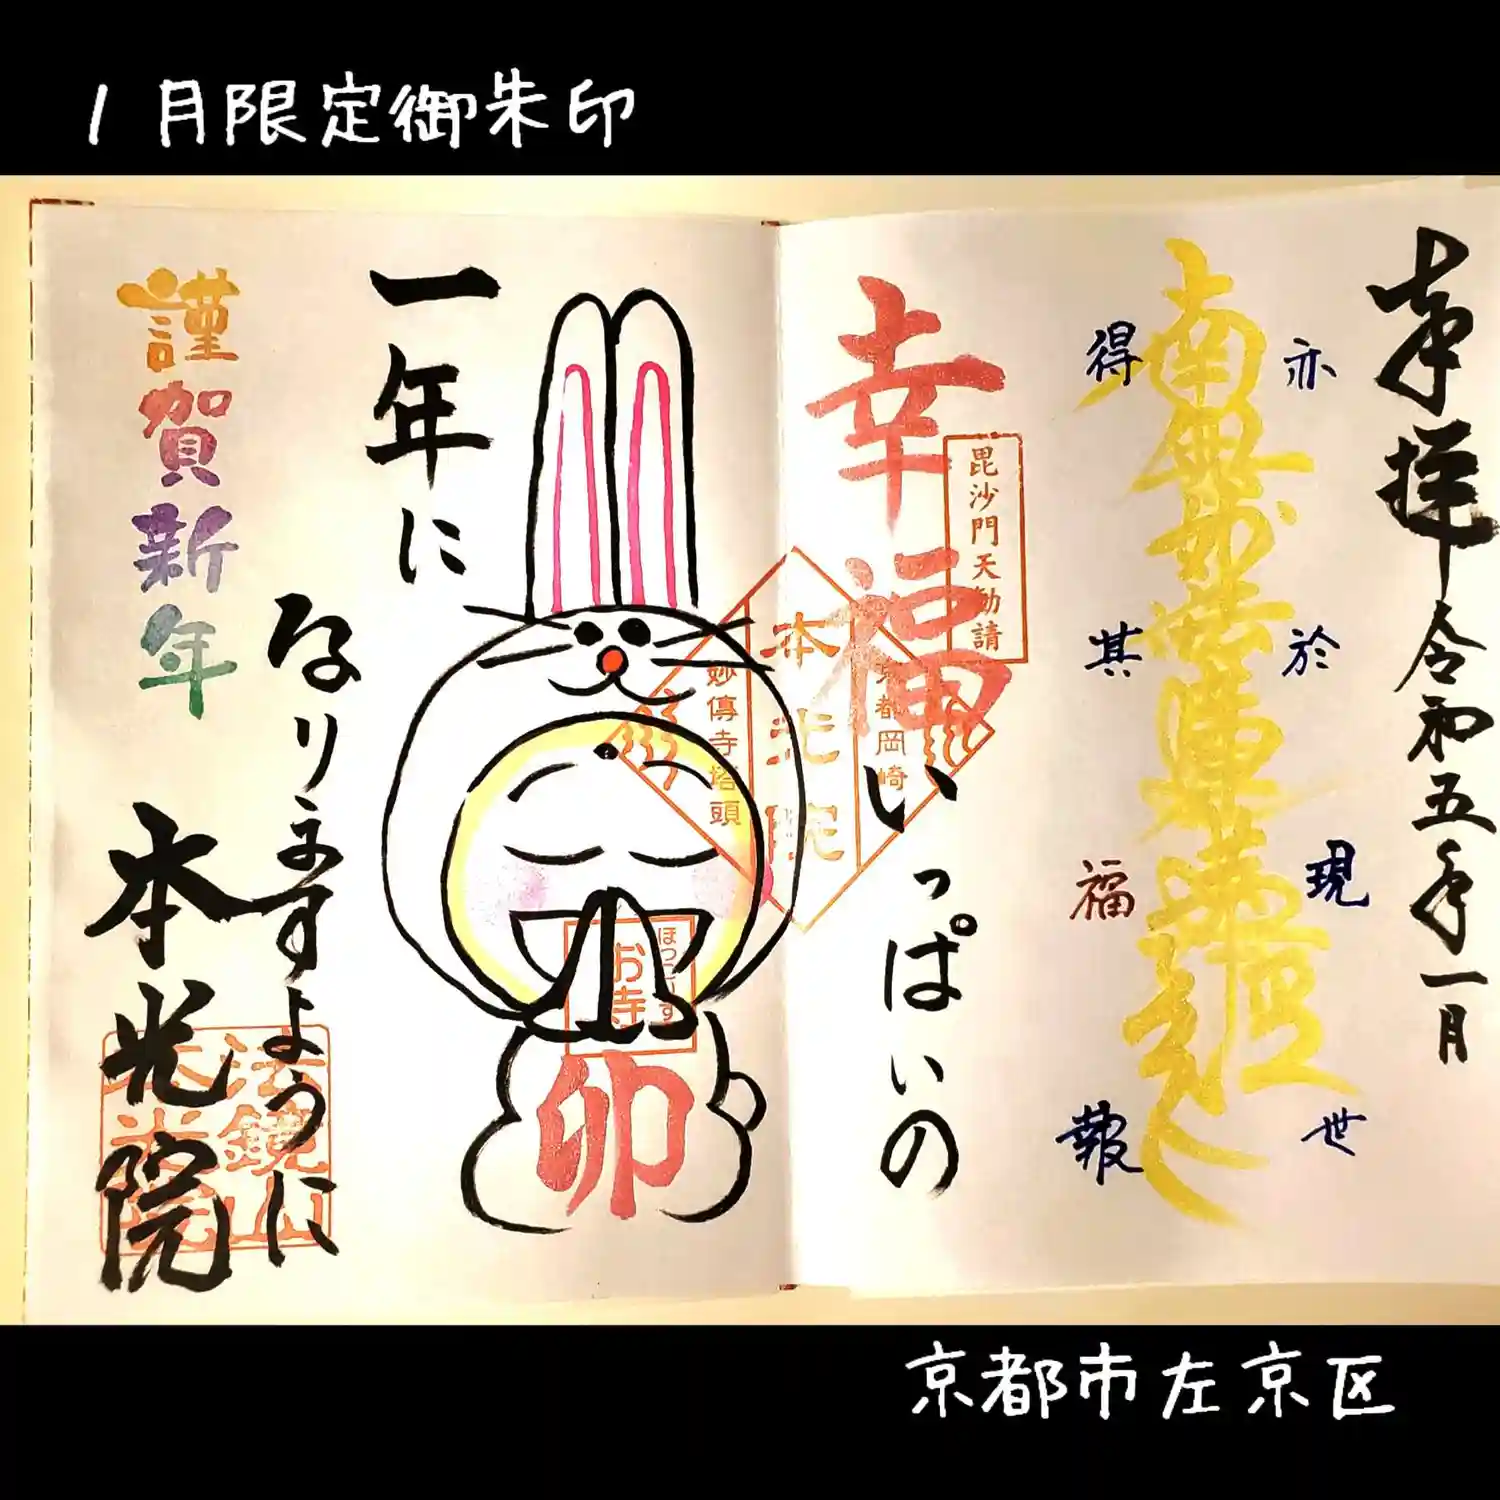 1月限定御朱印
奉拝 令和五年一月
亦於現世
南無妙法蓮華経
得其福報
幸福いっぱいの
毘沙門天勧請
京都岡崎
本光院
妙傳寺塔頭
一年に
なりますように
ほっこりす
お寺
卯
謹賀新年
本光院
法鏡山
本光院
京都市左京区